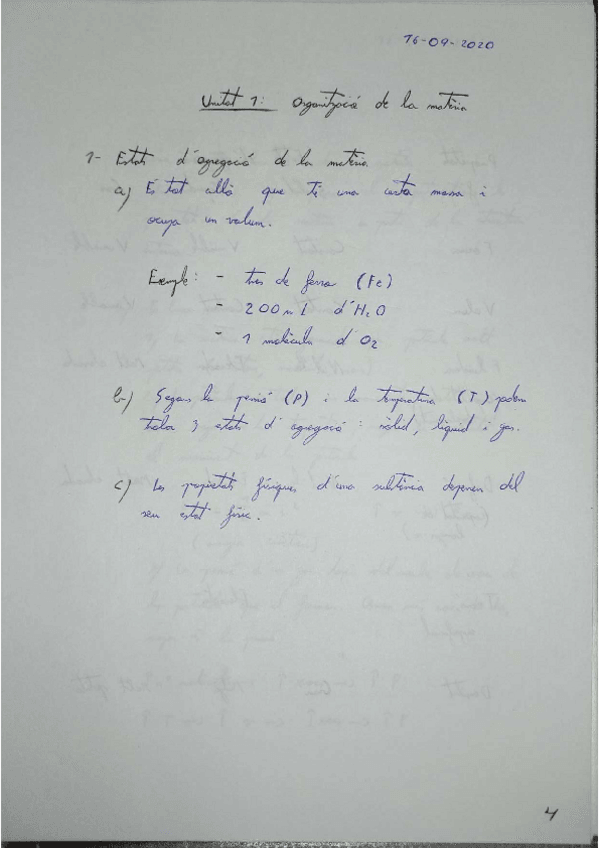 16-09-2020
Unitat 1: Organització de la matèria
1- Estats d'agregació de la matèria
a) És tot allò que té una certa massa i
ocupa un volum.
Exemple: - tros de ferro (Fe)
- 200 ml d'H2O
- 1 molècula d'O2
b) Segons la pressió (P) i la temperatura (T) podem
trobar 3 estats d'agregació: sòlid, líquid i gas.
c) Les propietats físiques d'una substància depenen del
seu estat físic.
4